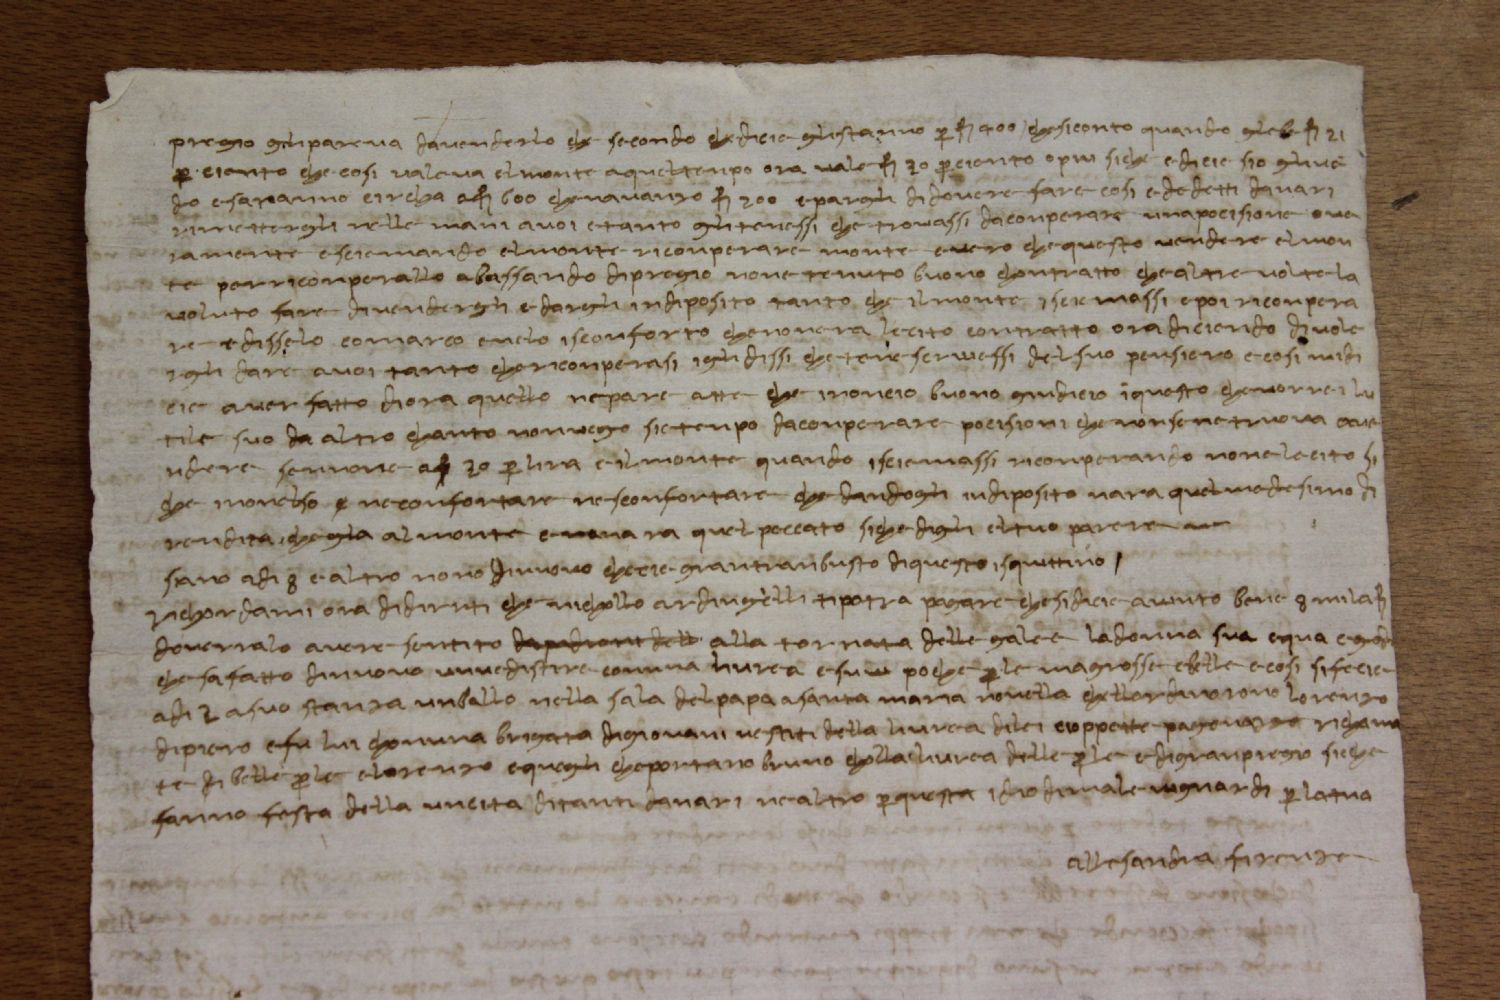 pregio gli pareva da venderlo che secondo che dicie gli stanno per f. 400 che si conto quando gli eb f. 21
per ciento che cosi valeva el monte a quel tenpo ora vale f. 30 per ciento o piu siche e dicie s io gli vē
do e saranno circha a f. 600 che navanzo f. 200 e pargli di dovere fare cosi e de detti danari
rimettergli nelle mani a voi e tanto gli tenessi che trovassi da conperare una pocisione ove
ramente e sciemando el monte riconperare monte e vero che questo vendere el mon
te per riconperallo abassando di pregio none tenuto buono chontratto che altre volte la
voluto fare di vendergli e dargli in diposito tanto che il monte isciemassi e poi riconpera
re e disselo co marco e uelo isconforto che nonera lecito contratto ora diciendo di vole
rgli dare a voi tanto che riconperasi igli dissi che te ne scrivessi del suo pensiero e cosi mi di
cie aver fatto di ora quello ne pare a tte che i non cio buono giudicio i questo che vorrei lu
tile suo da altro chanto non vego sie tenpo da conperare pocisioni che non se ne truova a ve
ndere se none a f. 30 per lira e il monte quando isciemassi riconperando none lecito si
che i non lso ne confortare ne sconfortare che dandogli in diposito nara quel medesimo di
rendita che gla al monte e non ara quel peccato siche digli el tuo parere
siano a di 8 e altro nono di nuovo che cie gran tranbusto di questo isquittino
richordami ora di dirti che nicholo ardinghelli ti potra pagare che si dicie a vinto bene 8 mila f.
doverralo avere sentito alla tornata delle galee la donna sua e qua e gode
che sa fatto di nuovo un vedistire con una livrea e su poche perle ma grosse e belle e cosi si fecie
a di 2 a suo stanza un ballo nella sala del papa a santa maria novella che llordinorono lorenzo
di piero e fu lui chon una brigata di giovani vestiti della livrea di lei cioppette pagonazze richama
te di belle perle e lorenzo e quegli che portano bruno cholla livrea delle perle e di gran pregio siche
fanno festa della vncita di tanti danari ne altro per questa idio di male vi guardi per la tua
allesandra firenze